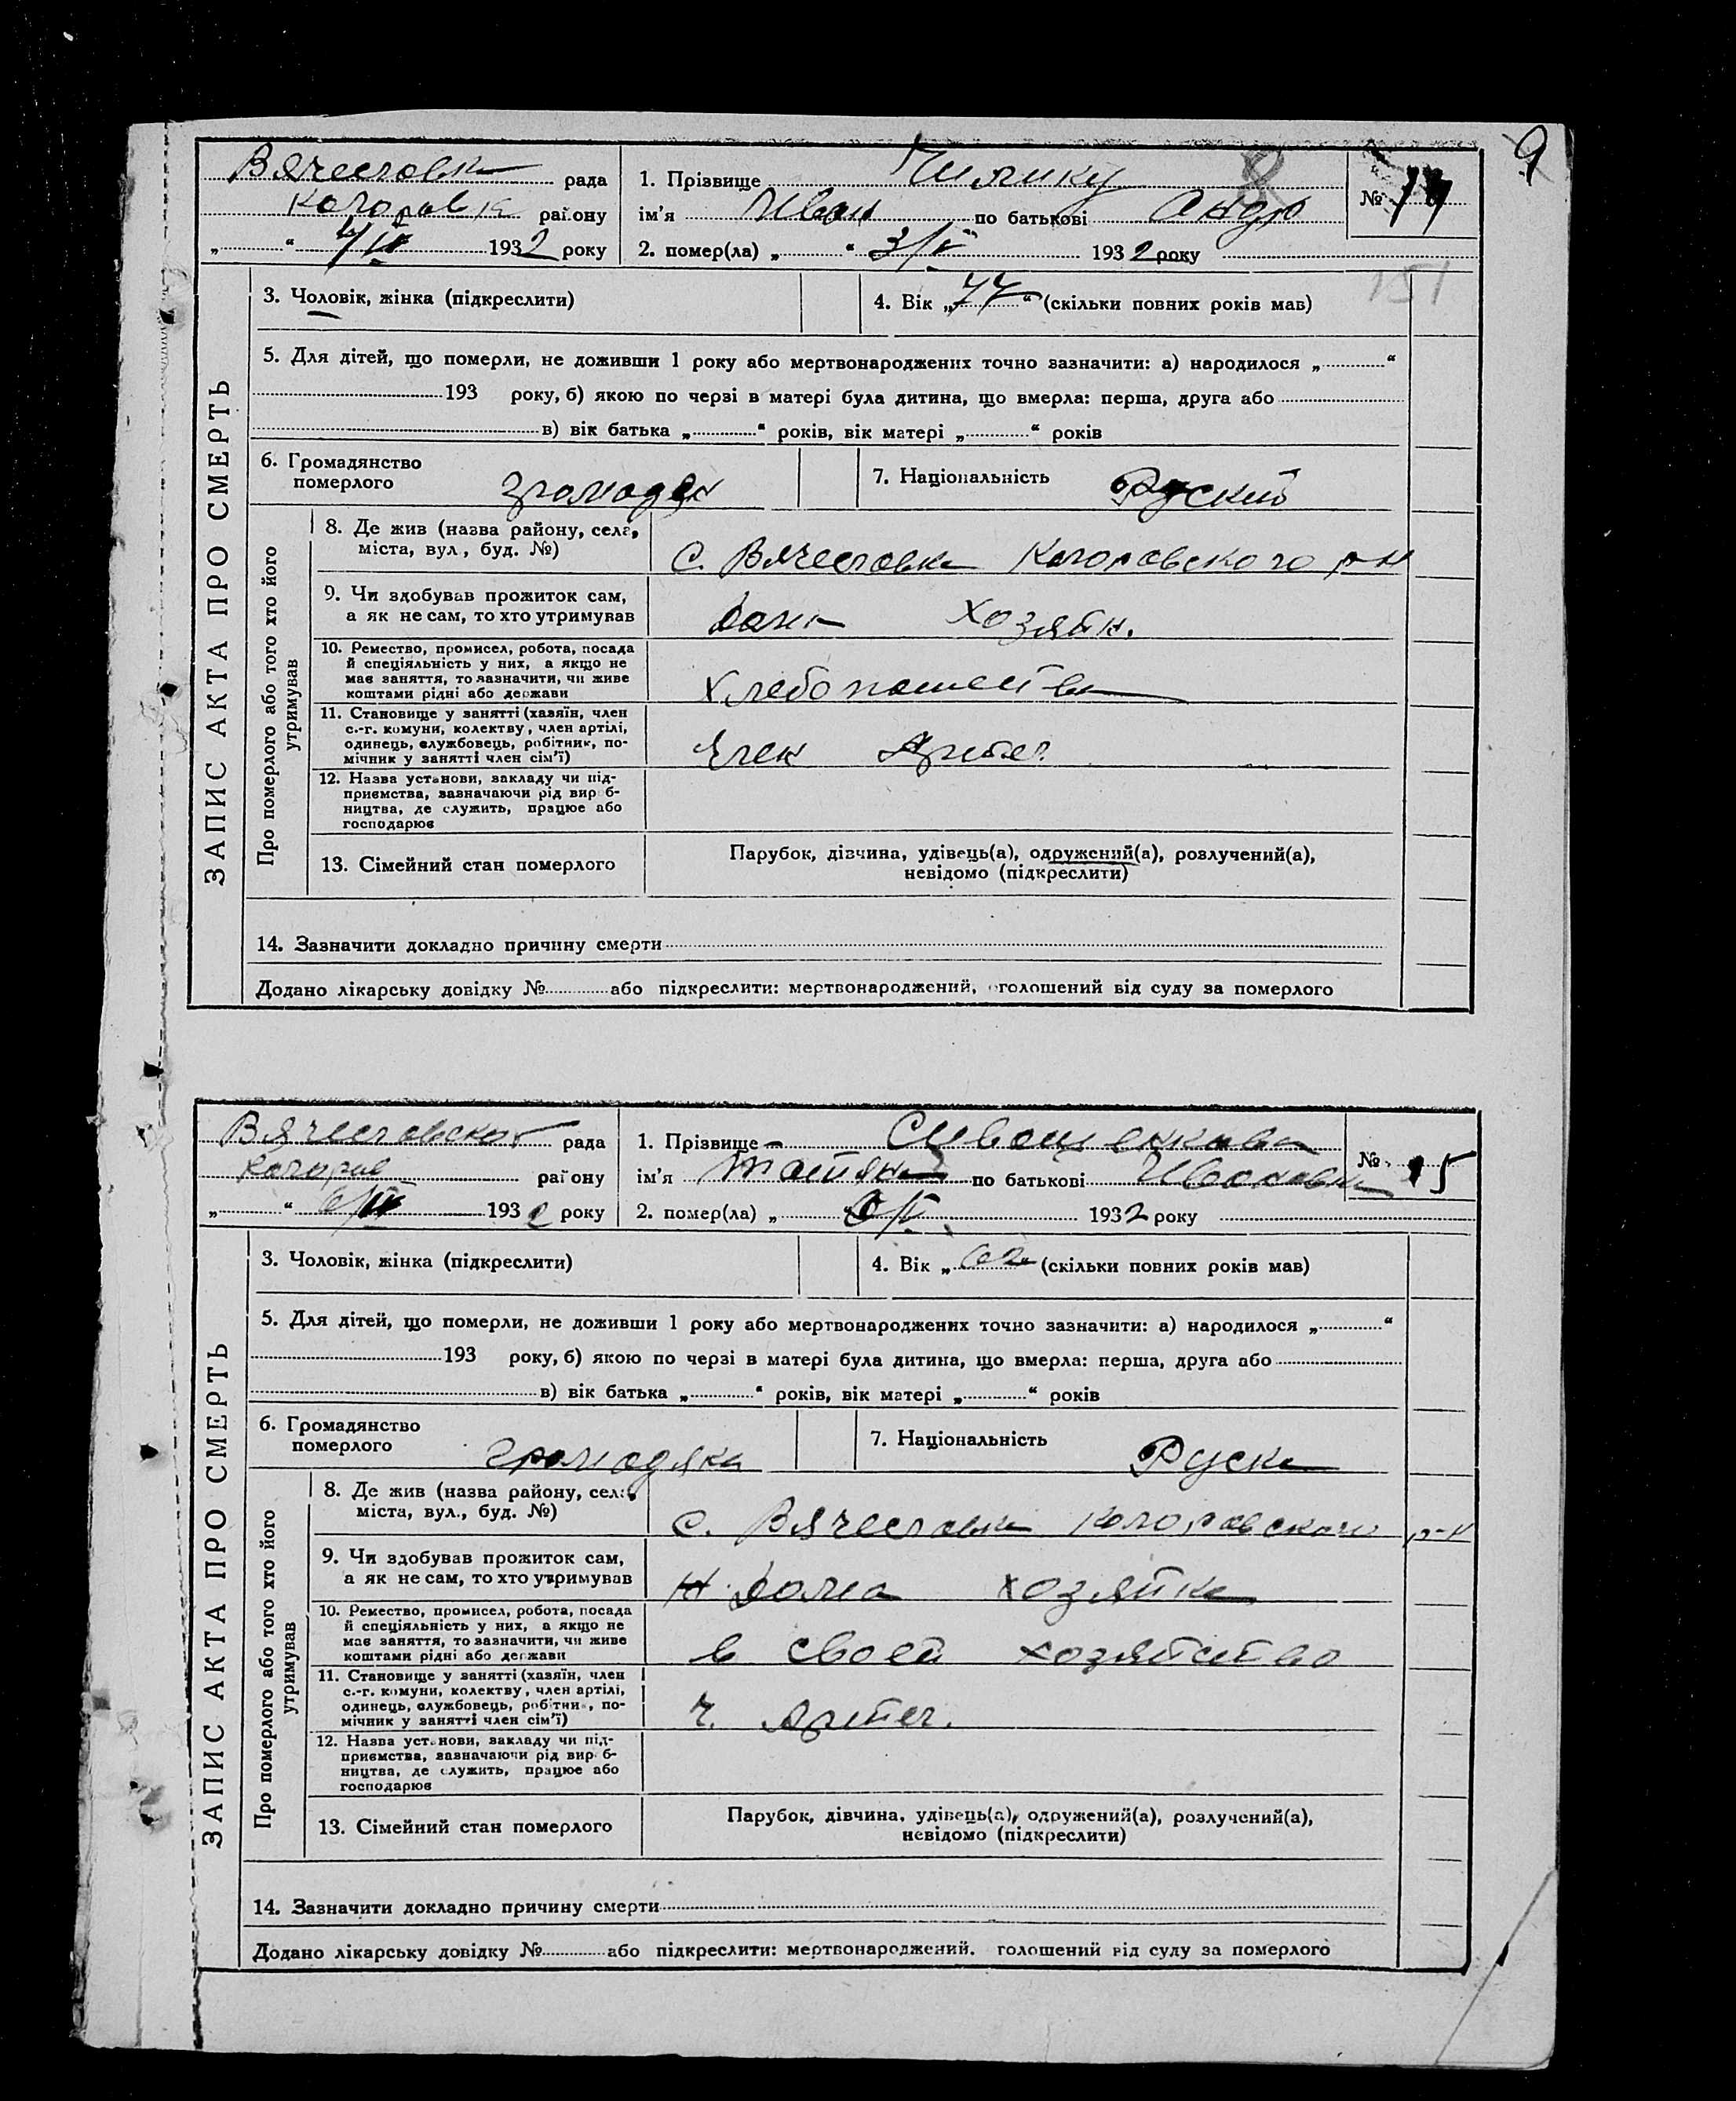 9
Вячеславка рада
району
193 2 року
1. Прізвище
ім'я Иван по батькові
2. помер(ла) „ “ 3/V 193 2 року
№ 14
151
ЗАПИС АКТА ПРО СМЕРТЬ
3. Чоловік, жінка (підкреслити)
4. Вік „ 77 “ (скільки повних років мав)
5. Для дітей, що померли, не доживши 1 року або мертвонароджених точно зазначити: а) народилося „ “
193 року, б) якою по черзі в матері була дитина, що вмерла: перша, друга або
в) вік батька „ “ років, вік матері „ “ років
6. Громадянство
померлого громадян
7. Національність Руский
Про померлого або того хто його
утримував
8. Де жив (назва району, села,
міста, вул., буд. №)
с. Вячеславка р-н
9. Чи здобував прожиток сам,
а як не сам, то хто утримував
хозяин.
10. Ремество, промисел, робота, посада
й спеціяльність у них, а якщо не
має заняття, то зазначити, чи живе
коштами рідні або держави
11. Становище у занятті (хазяїн, член
с.-г. комуни, колектву, член артілі,
одинець, службовець, робітник, по-
мічник у занятті член сім'ї)
Член Артел.
12. Назва установи, закладу чи під-
приємства, зазначаючи рід вироб-
ництва, де служить, працює або
господарює
13. Сімейний стан померлого
Парубок, дівчина, удівець(а), одружений(а), розлучений(а),
невідомо (підкреслити)
14. Зазначити докладно причину смерти
Додано лікарську довідку № або підкреслити: мертвонароджений, оголошений від суду за померлого
рада
району
193 2 року
1. Прізвище
ім'я Татьяна по батькові Ивановна
2. помер(ла) „ 193 2 року
№ 15
ЗАПИС АКТА ПРО СМЕРТЬ
3. Чоловік, жінка (підкреслити)
4. Вік „ 62 “ (скільки повних років мав)
5. Для дітей, що померли, не доживши 1 року або мертвонароджених точно зазначити: а) народилося „ “
193 року, б) якою по черзі в матері була дитина, що вмерла: перша, друга або
в) вік батька „ “ років, вік матері „ “ років
6. Громадянство
померлого громадяка
7. Національність Руска
Про померлого або того хто його
утримував
8. Де жив (назва району, села,
міста, вул., буд. №)
с. Вячеславка р-н
9. Чи здобував прожиток сам,
а як не сам, то хто утримував
Дома хозяйка
10. Ремество, промисел, робота, посада
й спеціяльність у них, а якщо не
має заняття, то зазначити, чи живе
коштами рідні або держави
в своей хозяйство
11. Становище у занятті (хазяїн, член
с.-г. комуни, колектву, член артілі,
одинець, службовець, робітник, по-
мічник у занятті член сім'ї)
Ч. Артел.
12. Назва установи, закладу чи під-
приємства, зазначаючи рід вироб-
ництва, де служить, працює або
господарює
13. Сімейний стан померлого
Парубок, дівчина, удівець(а), одружений(а), розлучений(а),
невідомо (підкреслити)
14. Зазначити докладно причину смерти
Додано лікарську довідку № або підкреслити: мертвонароджений, голошений від суду за померлого